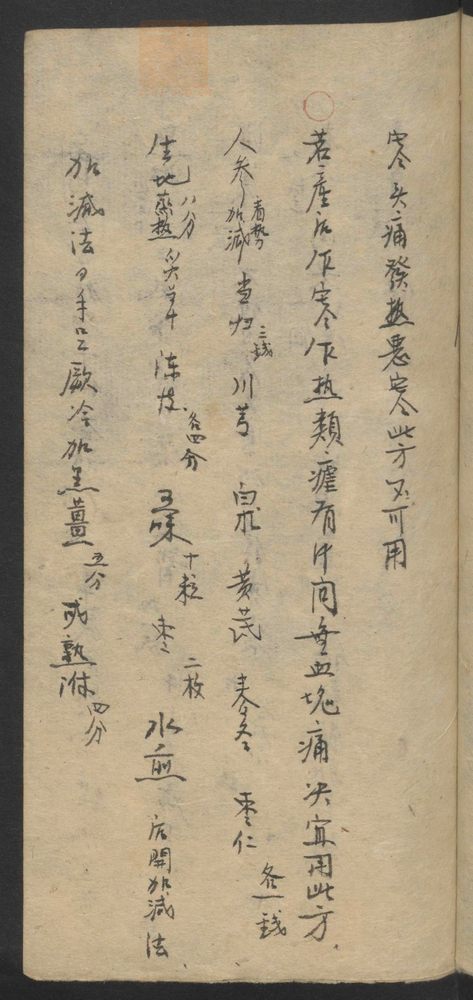 寒头痛發热惡寒此方不可用
若產后作寒作热類瘧有汗而無血塊痛决宜用此方
人参看势加减 当归三錢 川芎 白朮 黄芪 麦冬 枣仁各一錢
生地八分蒸熱 炙草 陈皮各四分 五味十粒 枣二枚 水煎 后開加减法
加减法曰手足厥冷加黑薑五分 或熟附四分